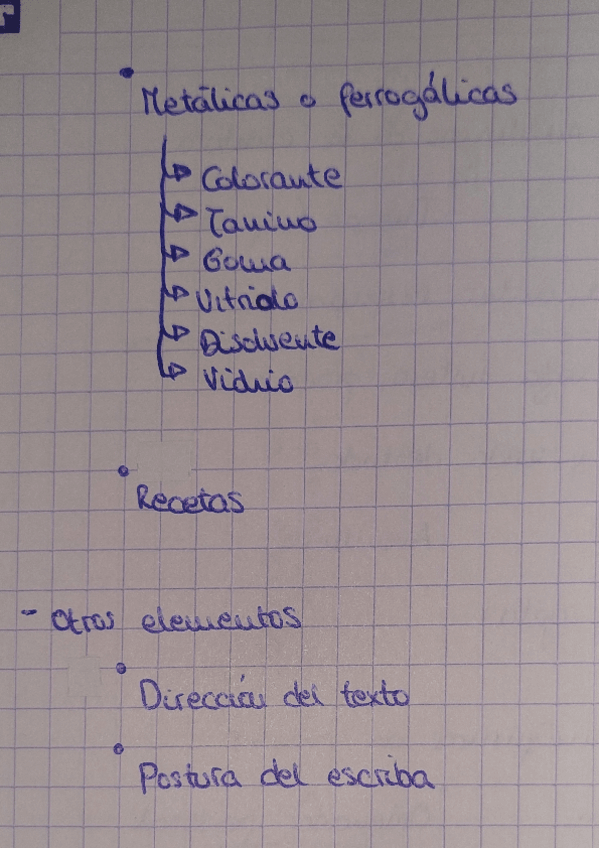 • Metálicas o ferrogálicas
Colorante
Tanino
Goma
Vitriolo
Disolvente
Vidrio
• Recetas
- Otros elementos
• Dirección del texto
• Postura del escriba